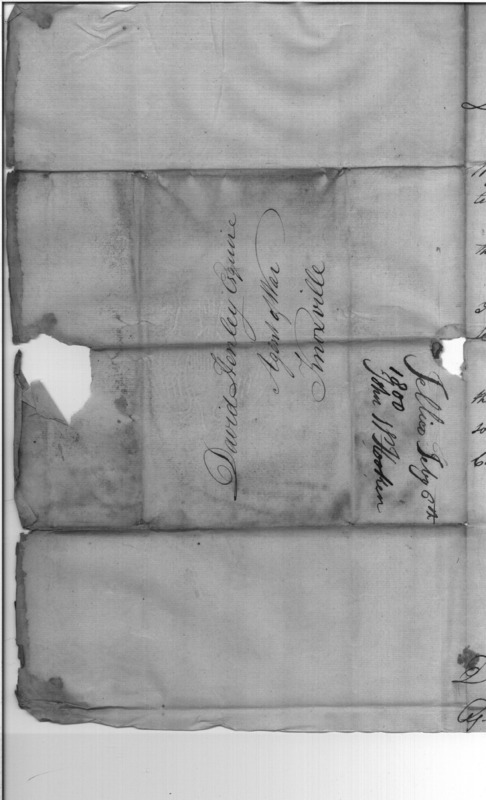 David Henley Esquire
Agent of War
Knoxville
Tellico 6th
1800
John W Hooker